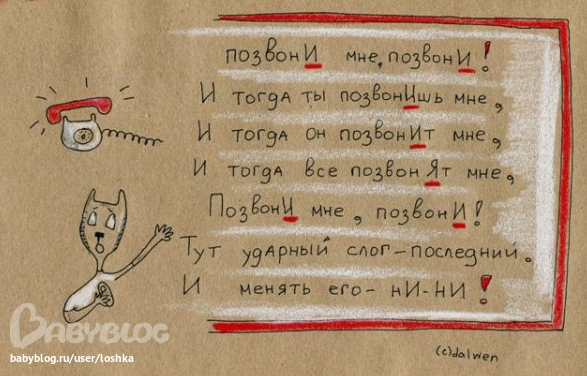 позвонИ мне, позвонИ!
И тогда ты позвонИшь мне,
И тогда он позвонИт мне,
И тогда все позвонЯт мне,
ПозвонИ мне, позвонИ!
Тут ударный слог-последний.
И менять его- нИ-НИ!
(c)dalwen
BABYBLOG
babyblog.ru/user/loshka